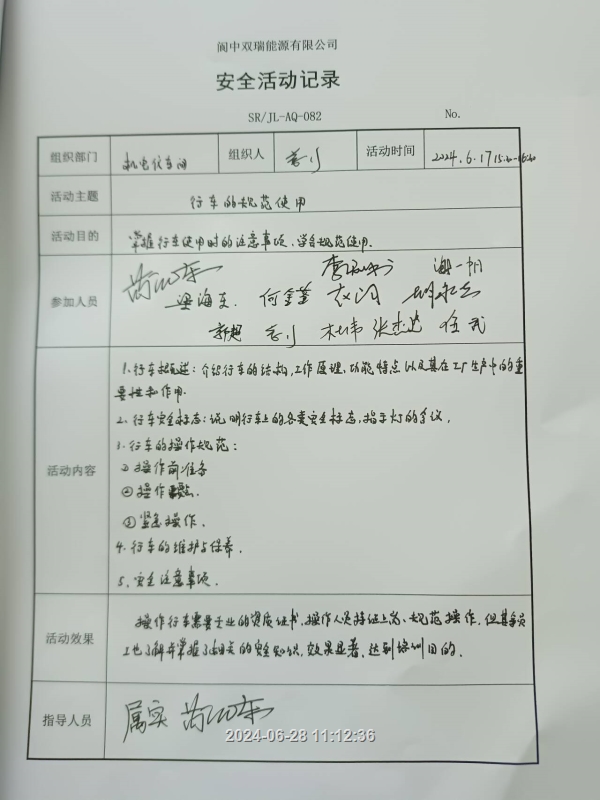 阆中双瑞能源有限公司
安全活动记录
SR/JL-AQ-082 No.
组织部门 机电仪车间 组织人 活动时间 2024.6.17
活动主题 行车的规范使用
活动目的 掌握行车使用时的注意事项,学会规范使用.
参加人员
梁海东 何金莲
张杰 任武
活动内容
1.行车概述:介绍行车的结构,工作原理,功能特点以及其在工厂生产中的重
要性和作用.
2.行车安全标志:说明行车上的各类安全标志,指示灯的含义.
3.行车的操作规范:
①操作前准备
②操作
③紧急操作.
4.行车的维护与保养.
5.安全注意事项.
活动效果
操作行车需要专业的资质证书,操作人员持证上岗、规范操作,但其余员
工也了解并掌握了相关的安全知识,效果显著,达到培训目的.
指导人员 属实
2024-06-28 11:12:36